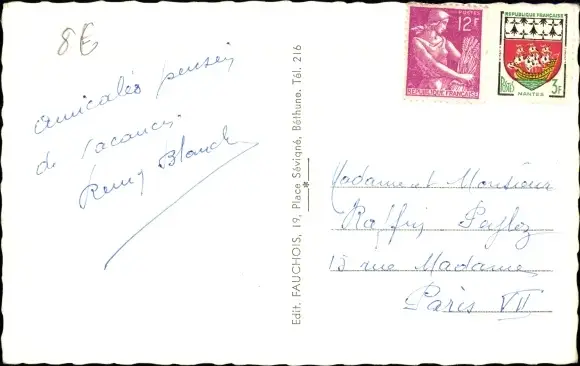 8€
amicales pensées
de vacances
Remy Blanch
Edit. FAUCHOIS, 19, Place Sévigné, Béthune. Tél. 216
POSTES
12F
REPUBLIQUE FRANÇAISE
REPUBLIQUE FRANÇAISE
POSTES
3F
NANTES
Madame et Monsieur
13 rue Madame
Paris VII